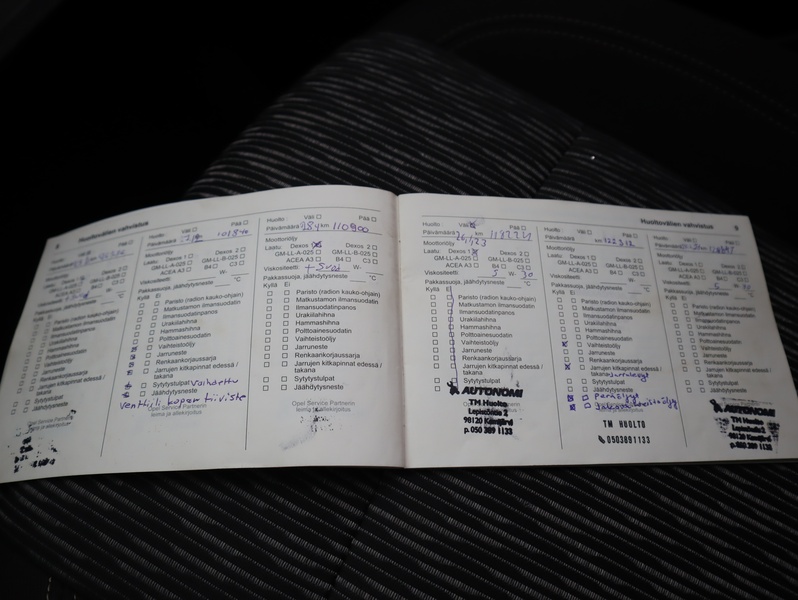 8 Huoltovälien vahvistus
Huolto Väli Pää
Päivämäärä km
Dexos 1 Dexos 2
GM-LL-A-025 GM-LL-B-025
ACEA A3 B4 C3
W-
Pakkassuoja, jäähdytysneste °C
Kyllä Ei
Paristo (radion kauko-ohjain)
Matkustamon ilmansuodatin
Ilmansuodatinpanos
Urakiilahihna
Hammashihna
Polttoainesuodatin
Vaihteistoöljy
Jarruneste
Renkaankorjaussarja
Jarrujen kitkapinnat edessä /
takana
Sytytystulpat
Jäähdytysneste
Huolto Väli Pää
Päivämäärä km
Moottoriöljy
Laatu: Dexos 1 Dexos 2
GM-LL-A-025 GM-LL-B-025
ACEA A3 B4 C3
Viskositeetti W-
Pakkassuoja, jäähdytysneste °C
Kyllä Ei
Paristo (radion kauko-ohjain)
Matkustamon ilmansuodatin
Ilmansuodatinpanos
Urakiilahihna
Hammashihna
Polttoainesuodatin
Vaihteistoöljy
Jarruneste
Renkaankorjaussarja
Jarrujen kitkapinnat edessä /
takana
Sytytystulpat Vaihdettu
Jäähdytysneste
Venttiili kopan tiiviste
Opel Service Partnerin
leima ja allekirjoitus
Huolto Väli Pää
Päivämäärä km 110900
Moottoriöljy
Laatu: Dexos 1 Dexos 2
GM-LL-A-025 GM-LL-B-025
ACEA A3 B4 C3
Viskositeetti W-
Pakkassuoja, jäähdytysneste °C
Kyllä Ei
Paristo (radion kauko-ohjain)
Matkustamon ilmansuodatin
Ilmansuodatinpanos
Urakiilahihna
Hammashihna
Polttoainesuodatin
Vaihteistoöljy
Jarruneste
Renkaankorjaussarja
Jarrujen kitkapinnat edessä /
takana
Sytytystulpat
Jäähdytysneste
Opel Service Partnerin
leima ja allekirjoitus
Huoltovälien vahvistus 9
Huolto Väli Pää
Päivämäärä km
Moottoriöljy
Laatu: Dexos 1 Dexos 2
GM-LL-A-025 GM-LL-B-025
ACEA A3 B4 C3
Viskositeetti 5 W- 30
Pakkassuoja, jäähdytysneste °C
Kyllä Ei
Paristo (radion kauko-ohjain)
Matkustamon ilmansuodatin
Ilmansuodatinpanos
Urakiilahihna
Hammashihna
Polttoainesuodatin
Vaihteistoöljy
Jarruneste
Renkaankorjaussarja
Jarrujen kitkapinnat edessä /
takana
Sytytystulpat
AUTONOMI
TM Huolto
Lepistöntie 2
98120 Kemijärvi
p. 050 389 1133
Huolto Väli Pää
Päivämäärä km
Moottoriöljy
Laatu: Dexos 1 Dexos 2
GM-LL-A-025 GM-LL-B-025
ACEA A3 B4 C3
Viskositeetti W-
Pakkassuoja, jäähdytysneste °C
Kyllä Ei
Paristo (radion kauko-ohjain)
Matkustamon ilmansuodatin
Ilmansuodatinpanos
Urakiilahihna
Hammashihna
Polttoainesuodatin
Vaihteistoöljy
Jarruneste
Renkaankorjaussarja
Jarrujen kitkapinnat edessä /
takana
Sytytystulpat
Jäähdytysneste
TM HUOLTO
0503891133
Väli Pää
Moottoriöljy
Laatu: Dexos 1 Dexos 2
GM-LL-A-025 GM-LL-B-025
ACEA A3 B4 C3
Viskositeetti W-
Pakkassuoja, jäähdytysneste °C
Kyllä Ei
Paristo (radion kauko-ohjain)
Matkustamon ilmansuodatin
Ilmansuodatinpanos
Urakiilahihna
Hammashihna
Polttoainesuodatin
Vaihteistoöljy
Jarruneste
Renkaankorjaussarja
Jarrujen kitkapinnat edessä /
takana
Sytytystulpat
Jäähdytysneste
AUTONOMI
TM Huolto
Lepistöntie 2
98120 Kemijärvi
p. 050 389 1133